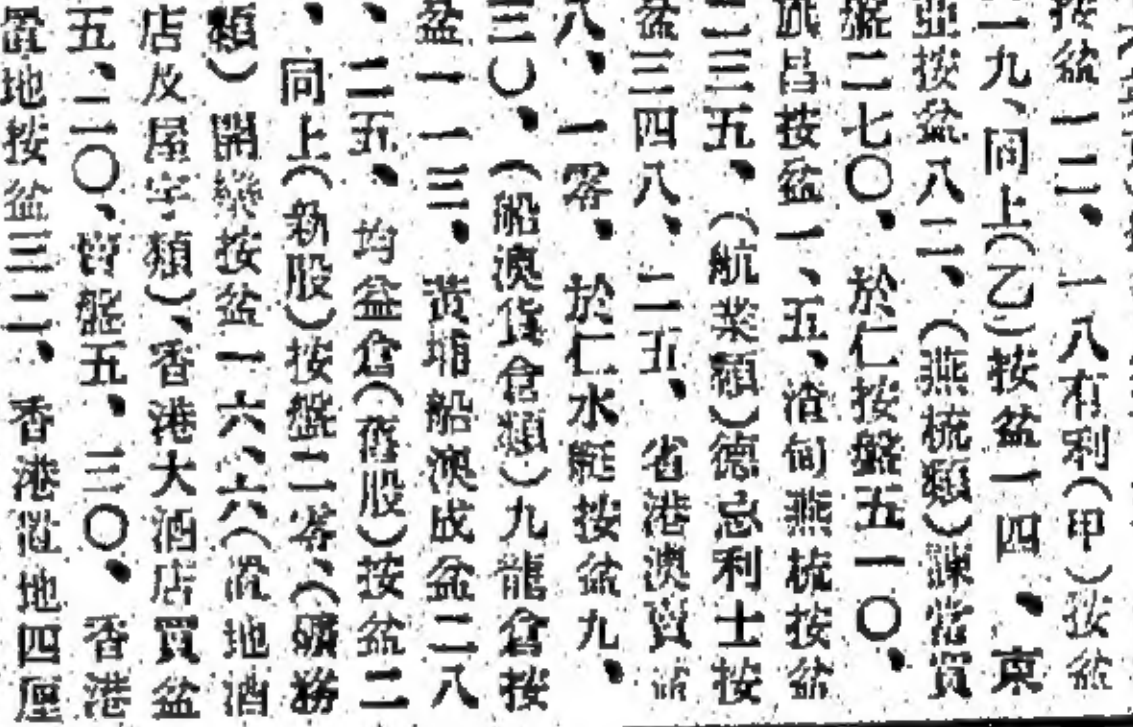 按盆一二、一八有利(甲)按盆
二九、同上(乙)按盆一四、東
亞按盆八二、(燕梳類)諫當買
盤二七〇、於仁按盤五一〇、
昌按盆一、五、渣甸燕梳按盆
二三五、(航業類)德忌利士按
盆三四八、二五、省港澳賣盆
八、一零、於仁水艇按盆九、
三〇、(船澳貨倉類)九龍倉按
盆一一三、黃埔船澳成盆二八
、二五、均益倉(舊股)按盆二
、同上(新股)按盤二零、(礦務
類)開欒按盆一六、六(置地酒
店及屋宇類)、香港大酒店買盆
五、二〇、賣盤五、三〇、香港
置地按盆三二、香港置地四厘